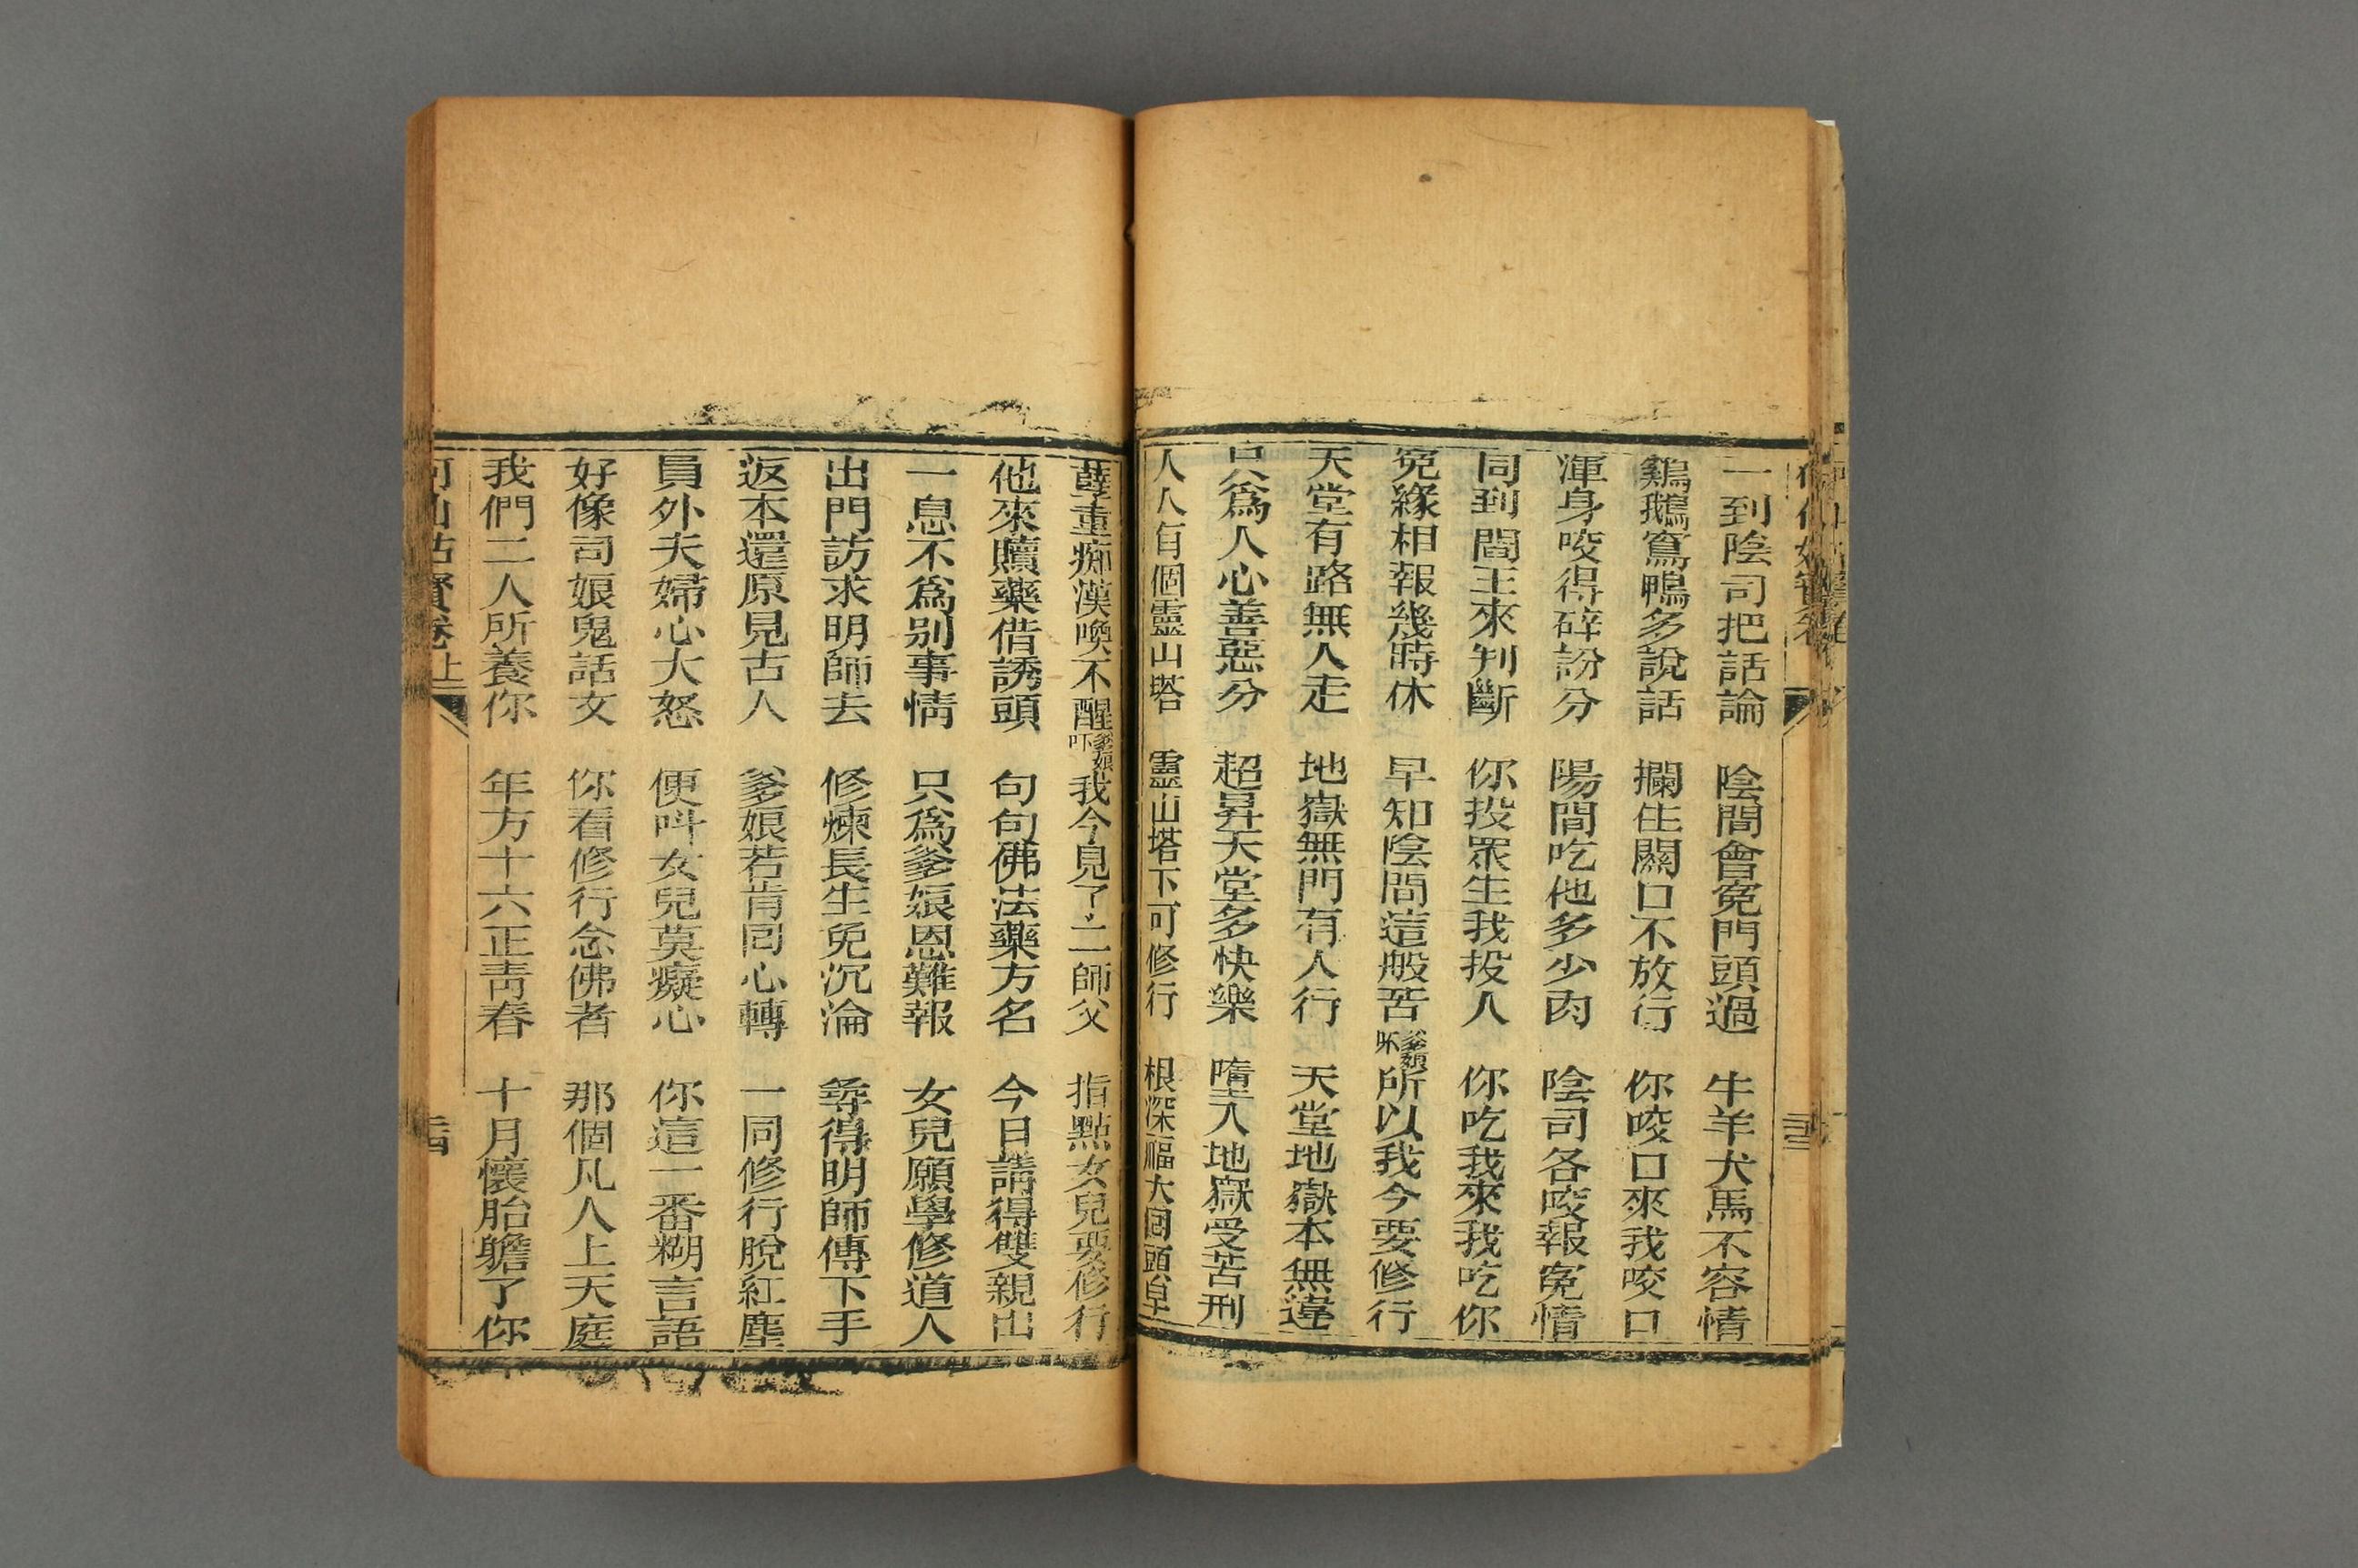 一到陰司把話論　陰間會寃門頭過　牛羊犬馬不容情
鷄鵝鴨多說話　攔住關口不放行　你咬口來我咬口
渾身咬得碎紛分　陽間吃他多少肉　陰司各咬報寃情
同到閻王來判斷　你投眾生我投人　你吃我來我吃你
寃緣相報幾時休　早知陰間這般苦　爹娘所以我今要修行
天堂有路無人走　地獄無門有人行　天堂地獄本無違
只爲人心善惡分　超昇天堂多快樂　墮入地獄受苦刑
人人有個靈山塔　靈山塔下可修行　根深福大回頭早
孽重痴漢喚不醒　爹娘吓我今見了二師父　指點女兒要修行
他來贖藥借誘頭　句句佛法藥方名　今日講得雙親出
一息不爲別事情　只爲爹娘恩難報　女兒願學修道人
出門訪求明師去　修煉長生免沉淪　尋得明師傳下手
返本還原見古人　爹娘若肯回心轉　一同修行脫紅塵
員外夫婦心大怒　便呌女兒莫癡心　你這一番糊言語
好像司娘鬼話女　你看修行念佛者　那個凡人上天庭
我們二人所養你　年方十六正靑春　十月懷胎躭了你
何仙姑寳卷上　二十四